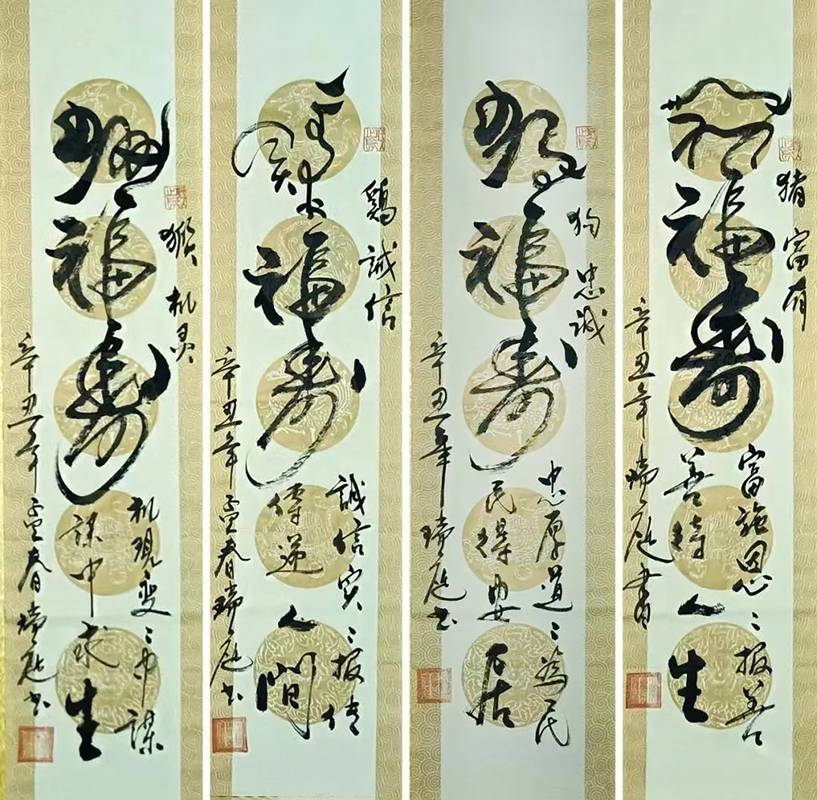 猴机灵
猴福寿
机现变〻中谋
谋中求生
辛丑年孟春瑞庭书
鷄誠信
福寿
誠信实〻报
傳递人間
辛丑年孟春瑞庭书
狗忠诚
狗福寿
忠厚道〻為民
民得安居
辛丑年瑞庭书
猪富有
福寿
富施恩〻报善
善待人生
辛丑年瑞庭書